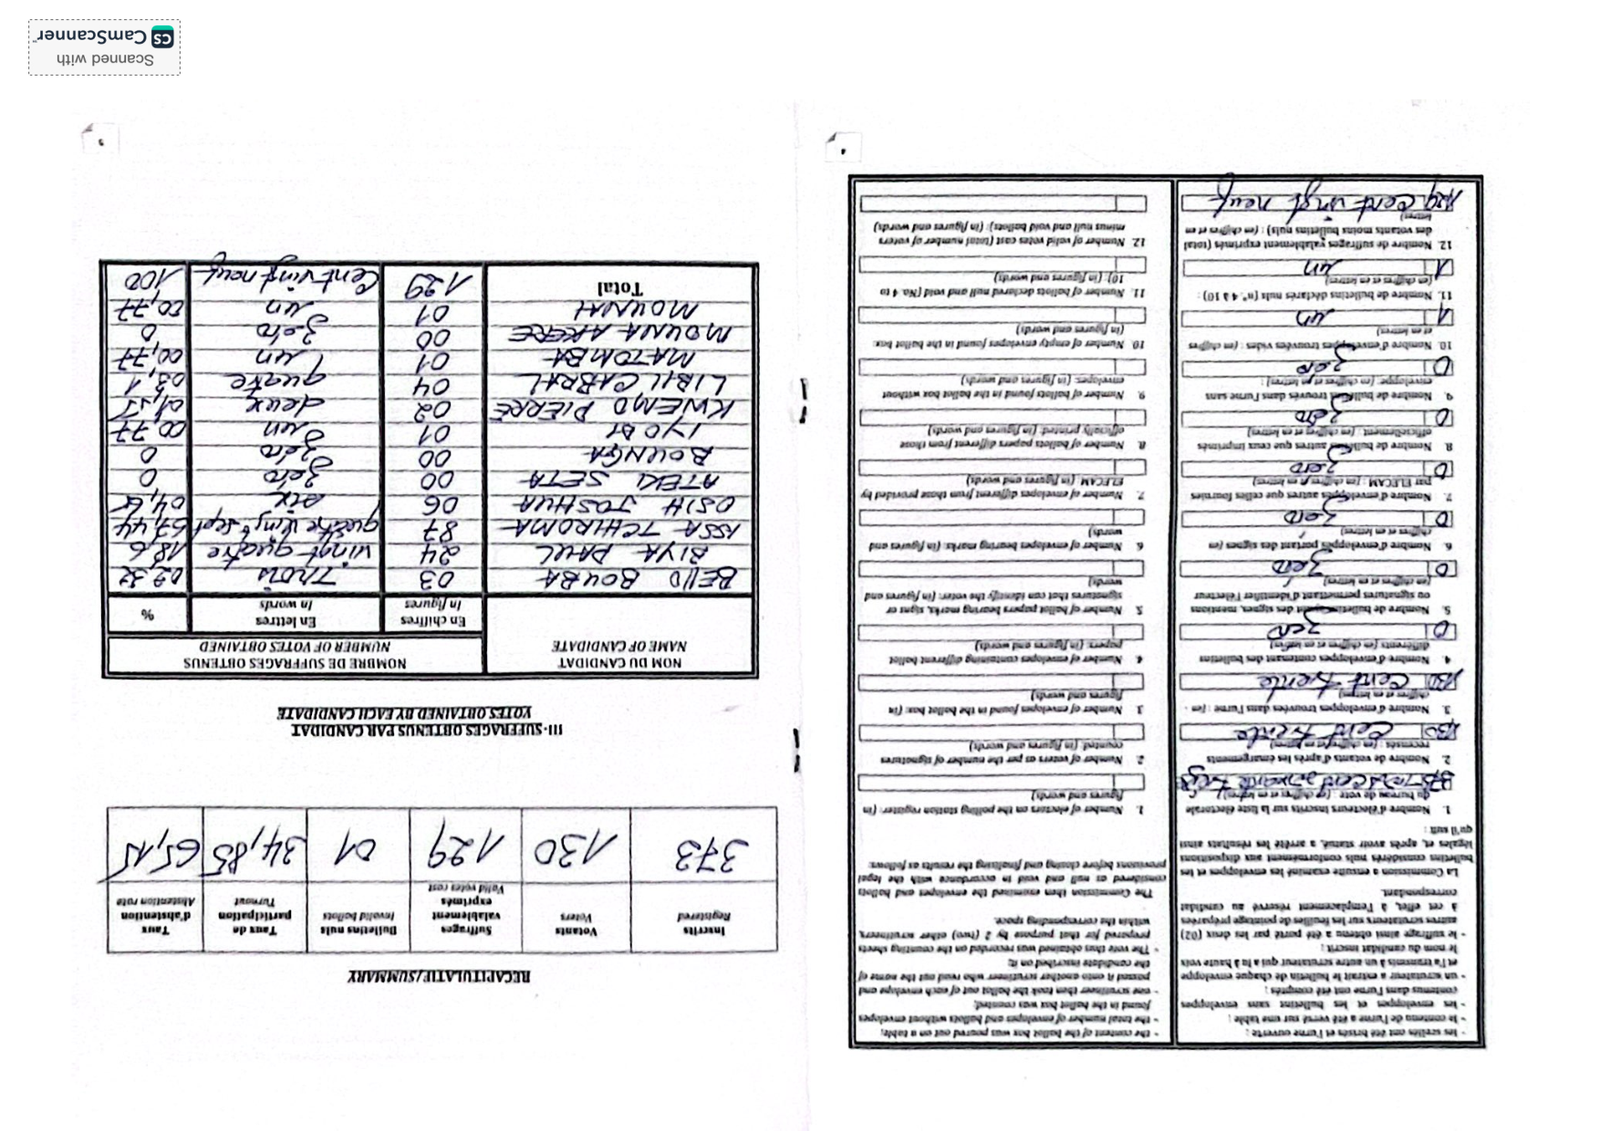 - les scellés ont été brisés et l'urne ouverte ;
- le contenu de l'urne a été versé sur une table ;
- les enveloppes et les bulletins sans enveloppes
contenus dans l'urne ont été comptés ;
- un scrutateur a extrait le bulletin de chaque enveloppe
et l'a transmis à un autre scrutateur qui a lu à haute voix
le nom du candidat inscrit ;
- le suffrage ainsi obtenu a été porté par les deux (02)
autres scrutateurs sur les feuilles de pointage préparées
à cet effet, à l'emplacement réservé au candidat
correspondant.
La Commission a ensuite examiné les enveloppes et les
bulletins considérés nuls conformément aux dispositions
légales et, après avoir statué, a arrêté les résultats ainsi
qu'il suit :
1. Nombre d'électeurs inscrits sur la liste électorale
du bureau de vote : (en chiffres et en lettres)
2. Nombre de votants d'après les émargements
recensés : (en chiffres et en lettres)
130 Cent trente
3. Nombre d'enveloppes trouvées dans l'urne : (en
chiffres et en lettres)
130 Cent trente
4. Nombre d'enveloppes contenant des bulletins
différents (en chiffres et en lettres)
0 Zéro
5. Nombre de bulletins portant des signes, mentions
ou signatures permettant d'identifier l'électeur
(en chiffres et en lettres)
0 Zéro
6. Nombre d'enveloppes portant des signes (en
chiffres et en lettres)
0 Zéro
7. Nombre d'enveloppes autres que celles fournies
par ELECAM : (en chiffres et en lettres)
0 Zéro
8. Nombre de bulletins autres que ceux imprimés
officiellement : (en chiffres et en lettres)
0 Zéro
9. Nombre de bulletins trouvés dans l'urne sans
enveloppe: (en chiffres et en lettres) :
0 Zéro
10. Nombre d'enveloppes trouvées vides : (en chiffres
et en lettres)
1 un
11. Nombre de bulletins déclarés nuls (n° 4 à 10) :
(en chiffres et en lettres)
1 un
12. Nombre de suffrages valablement exprimés (total
des votants moins bulletins nuls) : (en chiffres et en
lettres)
129 Cent vingt neuf
- the content of the ballot box was poured out on a table;
- the total number of envelopes and ballots without envelopes
found in the ballot box was counted;
- one scrutineer then took the ballot out of each envelope and
passed it onto another scrutineer who read out the name of
the candidate inscribed on it;
- The vote thus obtained was recorded on the counting sheets
prepared for that purpose by 2 (two) other scrutineers,
within the corresponding space.
The Commission then examined the envelopes and ballots
considered as null and void in accordance with the legal
provisions before closing and finalising the results as follows:
1. Number of electors on the polling station register: (in
figures and words)
2. Number of voters as per the number of signatures
counted: (in figures and words)
3. Number of envelopes found in the ballot box: (in
figures and words)
4. Number of envelopes containing different ballot
papers: (in figures and words)
5. Number of ballot papers bearing marks, signs or
signatures that can identify the voter: (in figures and
words)
6. Number of envelopes bearing marks: (in figures and
words)
7. Number of envelopes different from those provided by
ELECAM (in figures and words)
8. Number of ballots papers different from those
officially printed: (in figures and words)
9. Number of ballots found in the ballot box without
envelopes: (in figures and words)
10. Number of empty envelopes found in the ballot box:
(in figures and words)
11. Number of ballots declared null and void (No. 4 to
10): (in figures and words)
12. Number of valid votes cast (total number of voters
minus null and void ballots): (in figures and words)
4
RECAPITULATIF/SUMMARY
Inscrits
Registered
Votants
Voters
Suffrages
valablement
exprimés
Valid votes cast
Bulletins nuls
Invalid ballots
Taux de
participation
Turnout
Taux
d'abstention
Abstention rate
373 130 129 01 34,85 65,15
III- SUFFRAGES OBTENUS PAR CANDIDAT
VOTES OBTAINED BY EACH CANDIDATE
NOM DU CANDIDAT
NAME OF CANDIDATE
NOMBRE DE SUFFRAGES OBTENUS
NUMBER OF VOTES OBTAINED
En chiffres
In figures
En lettres
In words
%
BELLO BOUBA 03 Trois 02.32
BIYA PAUL 24 vingt quatre 18,6
ISSA TCHIROMA 87 quatre vingt sept 67,44
OSIH JOSHUA 06 six 04,65
ATEKI SETA 00 Zéro 0
BOUNGA 00 Zéro 0
IYODI 01 un 00,77
KWEMO PIERRE 02 deux 01,55
LIBII CABRAL 04 quatre 03,1
MATOMBA 01 un 00,77
MOUNA AKERE 00 Zéro 0
MOUNAH 01 un 00,77
Total 129 Cent vingt neuf 100
5
Scanned with
CS CamScanner